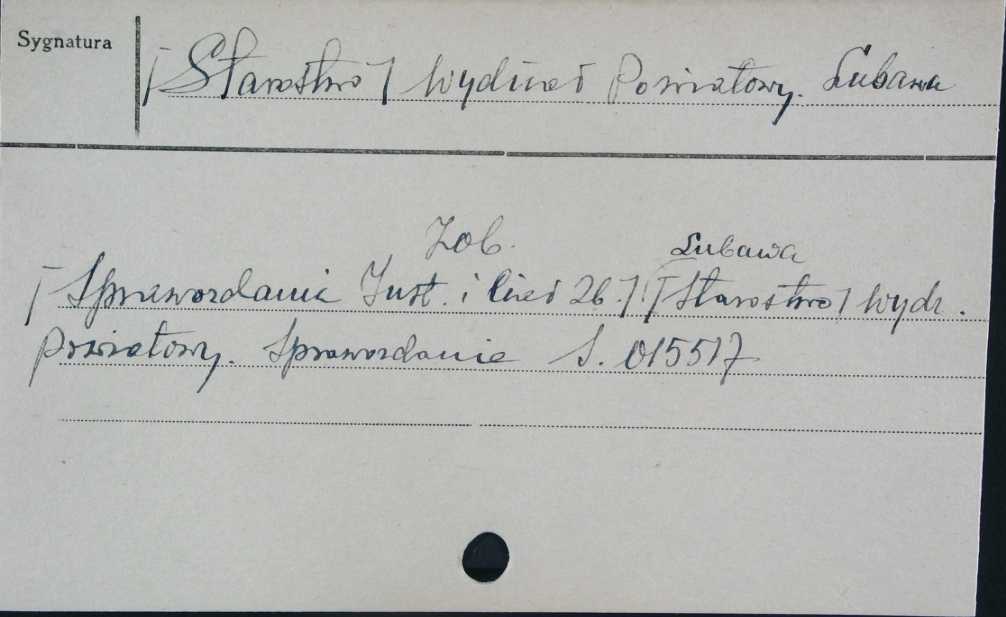 Sygnatura
[Starostwo] Wydział Powiatowy. Lubawa
Zob. Lubawa
[Sprawozdania Inst. i 26.] [Starostwo] Wydz.
Powiatowy. Sprawozdanie S. 015517